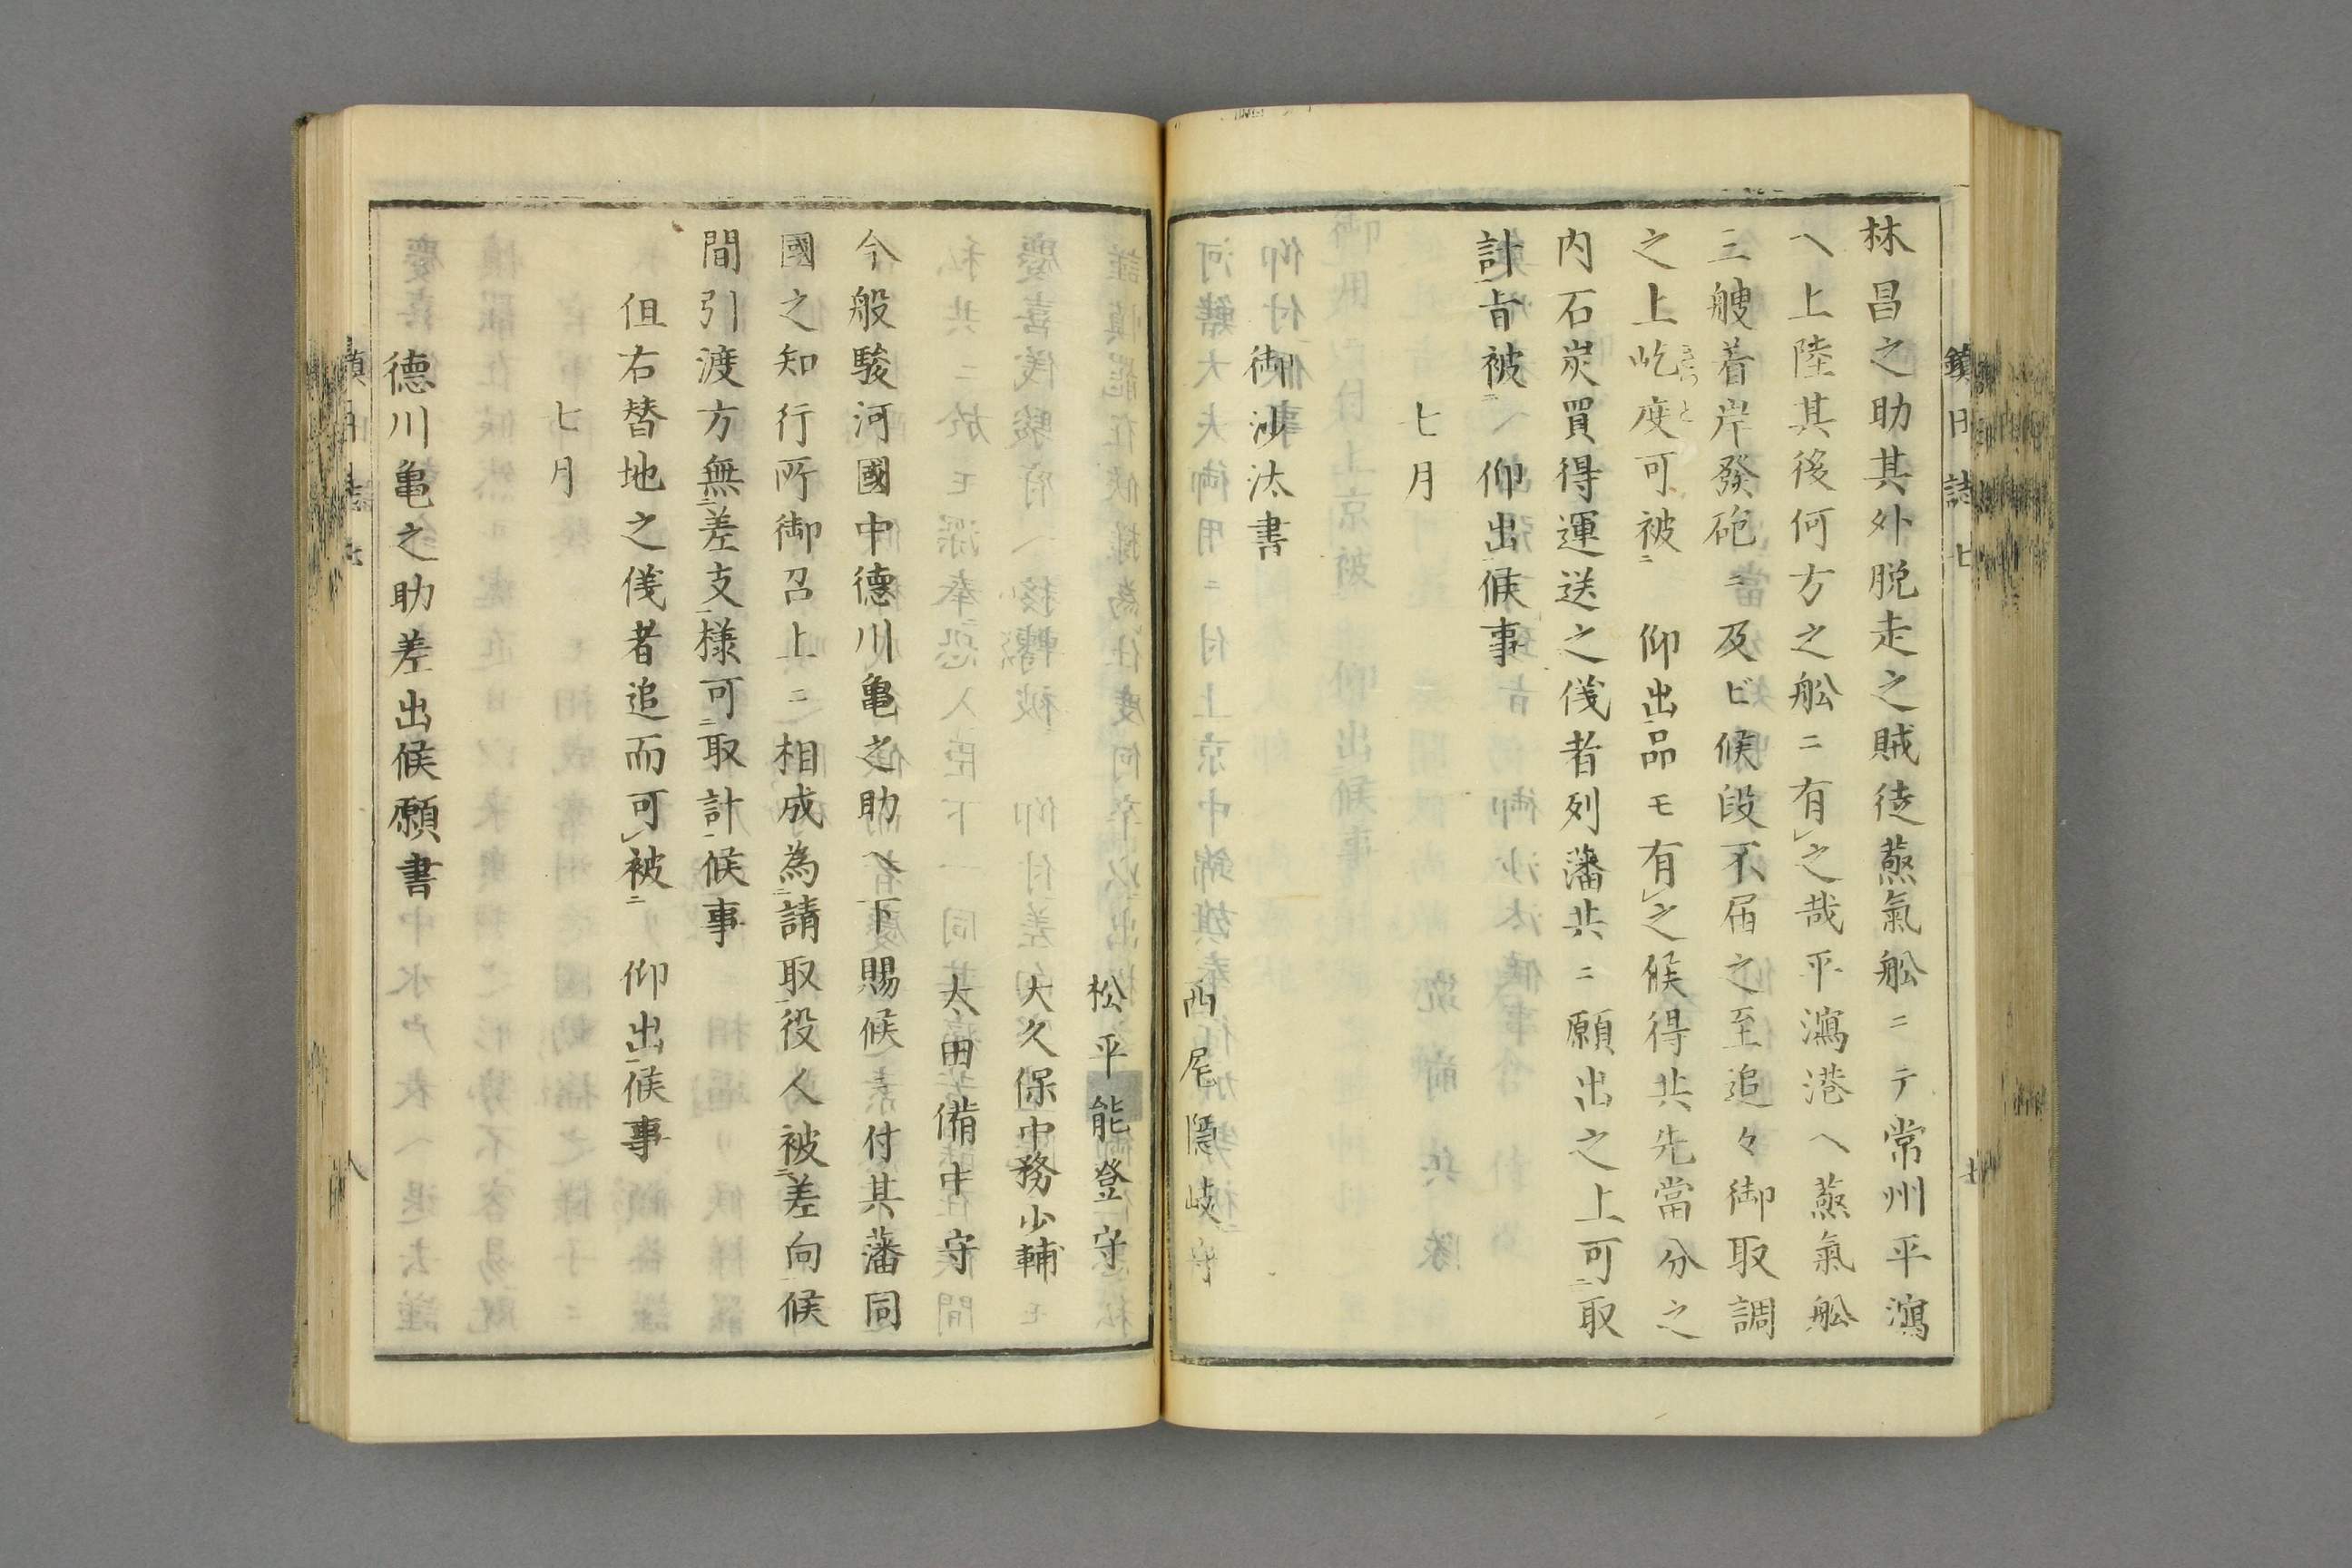 鎮日誌七
林昌之助其外脱走之賊徒蒸氣舩ニテ常州平瀉
へ上陸其後何方之舩ニ有レ之哉平瀉港へ蒸氣舩
三艘着岸發砲ニ及ビ候段不届之至追々御取調
之上屹度可被二 仰出一品モ有レ之候得共先當分之
内石炭買得運送之儀者列藩共ニ願出之上可二取
計一旨被二 仰出一候事
七月
御沙汰書
西尾隱岐守
松平能登守
大久保中務少輔
太田備中守
今般駿河國中德川亀之助へ下賜候付其藩同
國之知行所御召上ニ相成為二請取一役人被二差向一候
間引渡方無二差支一様可二取計一候事
但右替地之儀者追而可レ被二 仰出一候事
七月
德川亀之助差出候願書
八